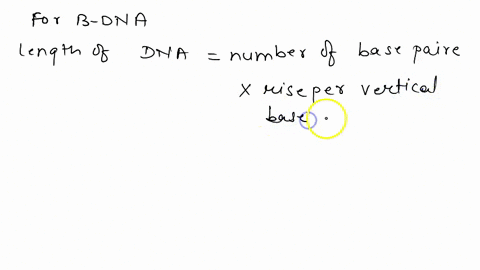 For B-DNA
length of DNA = number of base paire
x rise per vertical
base .